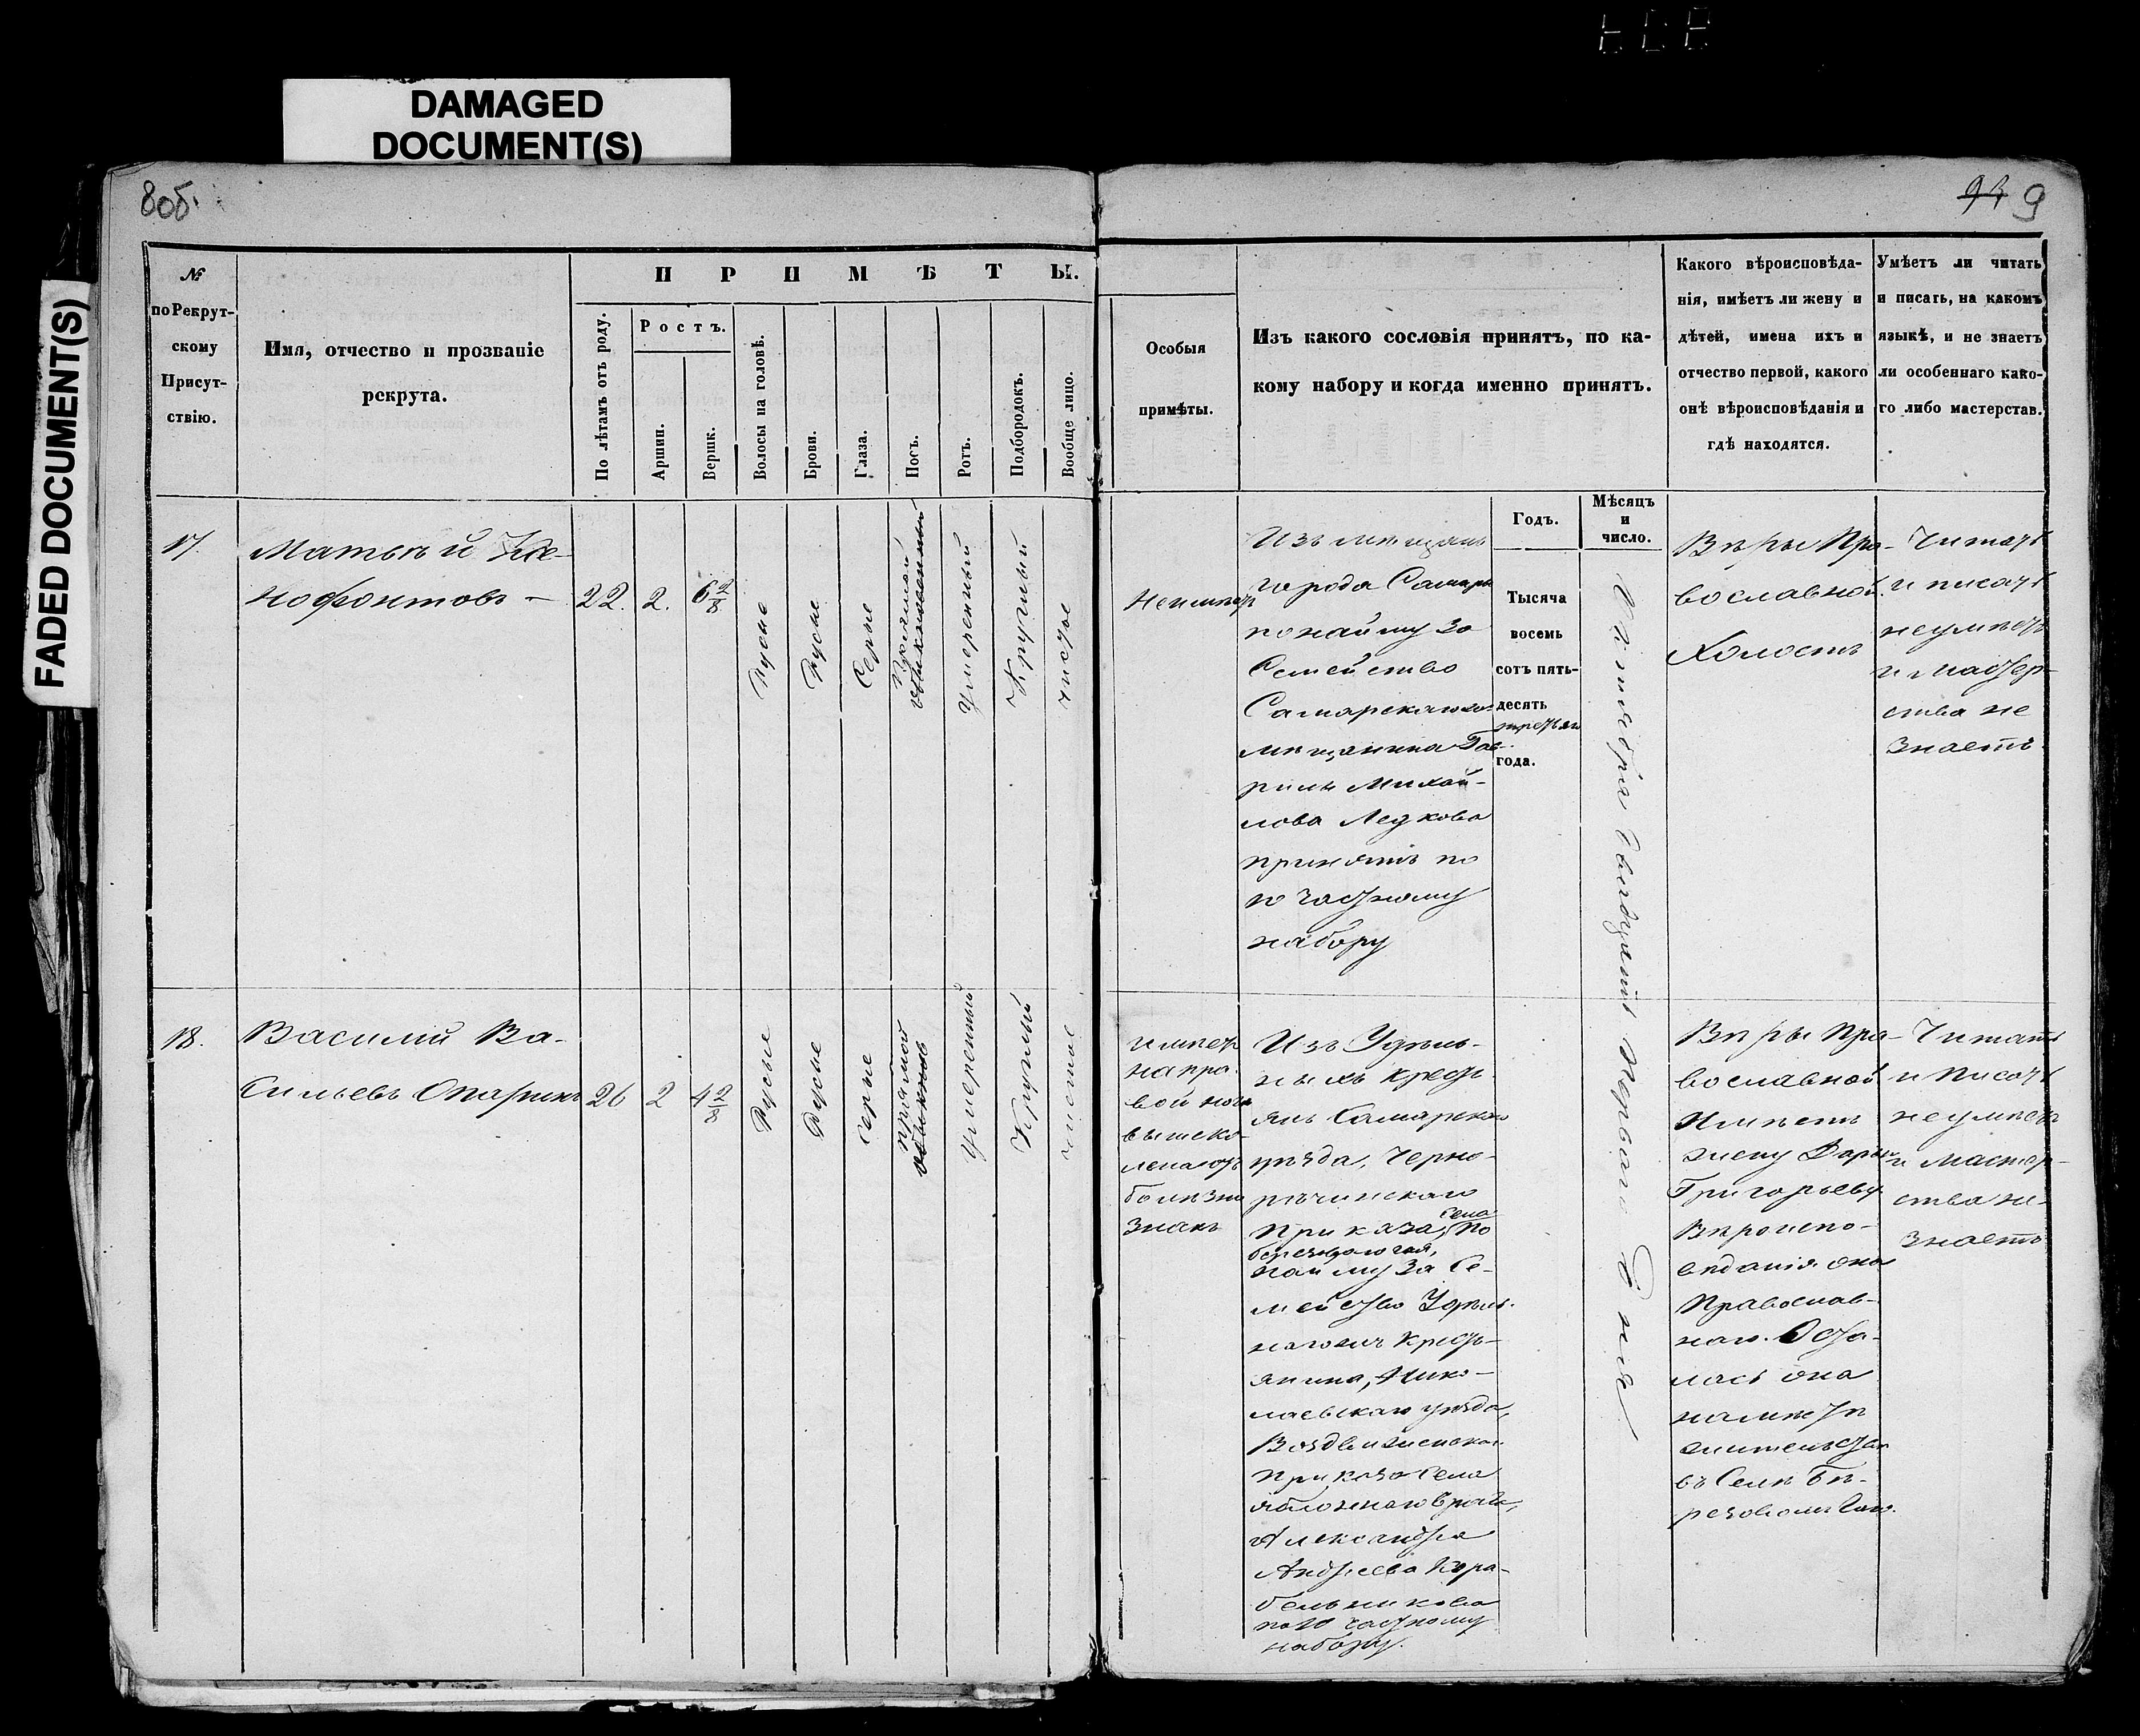 DAMAGED
DOCUMENT(S)
FADED DOCUMENT(S)
8об.
9
№
по Рекрут-
скому
Присут-
ствію.
Имя, отчество и прозваніе
рекрута.
ПРИМѢТЫ.
По лѣтамъ отъ роду.
Ростъ.
Аршин.
Вершк.
Волосы на головѣ.
Брови.
Глаза.
Носъ.
Ротъ.
Подбородокъ.
Вообще лицо.
Особыя
примѣты.
Изъ какого сословія принятъ, по ка-
кому набору и когда именно принятъ.
Какого вѣроисповѣда-
нія, имѣетъ ли жену и
дѣтей, имена ихъ и
отчество первой, какого
онѣ вѣроисповѣданія и
гдѣ находятся.
Умѣетъ ли читать
и писать, на какомъ
языкѣ, и не знаетъ
ли особеннаго како-
го либо мастерстав.
Годъ.
Мѣсяцъ
и
число.
17.
Матвѣй Ксе-
нофонтовъ –
22.
2.
6 2/8
Русые
Русые
Серые
обыкновенный
Умеренный
Круглый
чистое
Неимѣетъ
Изъ мѣщанъ
города Самары
по найму за
Семейство
Самарскаго
мѣщанина Гав-
рилы Михай-
лова Ледкова
принятъ по
10 частному
набору
Тысяча
восемь
сотъ пять-
десять
третьяго
года.
Сентября двадцать перваго дня
Вѣры Пра-
вославной.
Холостъ
Читать
и писать
неумѣетъ
и мастер-
ства не
знаетъ.
18.
Василий Ва-
сильевъ Опаринъ
26
2
4 2/8
Русые
Русые
серые
прямой
Умеренный
Круглый
чистое
имѣетъ
на пра-
вой ноге
выше ко-
лена отъ
болѣзни
знакъ
Изъ Удѣль-
ныхъ крестъ-
янъ Самарскаго
уѣзда, Черно-
рѣчинскаго
приказа, Села
Березоваго гая, по
найму за Се-
мейство Удѣль-
наго крестъ-
янина, Нико-
лаевскаго уѣзда,
Воздвиженскаго
приказа Села
Яблоннаго врага,
Александра
Андреева Кора-
бельникова
по 10 частному
набору.
Вѣры Пра-
вославной
Имѣетъ
жену Дарью
Григорьеву
Вѣроиспо-
вѣданія она
Православ-
наго. Оста-
лась она
на мѣстѣ
жительства
въ Селѣ Бе-
резовомъ Гаю.
Читать
и писать
неумѣетъ
и мастер-
ства не-
знаетъ